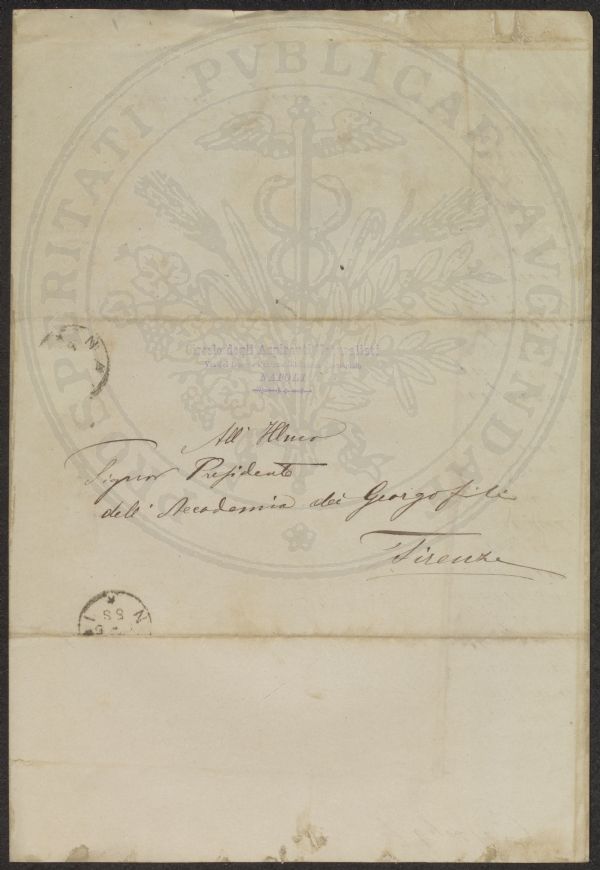 PROSPERITATI PVBLICAE AVGENDAE
Circolo degli Aspiranti Naturalisti
NAPOLI
NA
All' Illmo
Signor Presidente
dell' Accademia dei Georgofili
Firenze
N
5
88